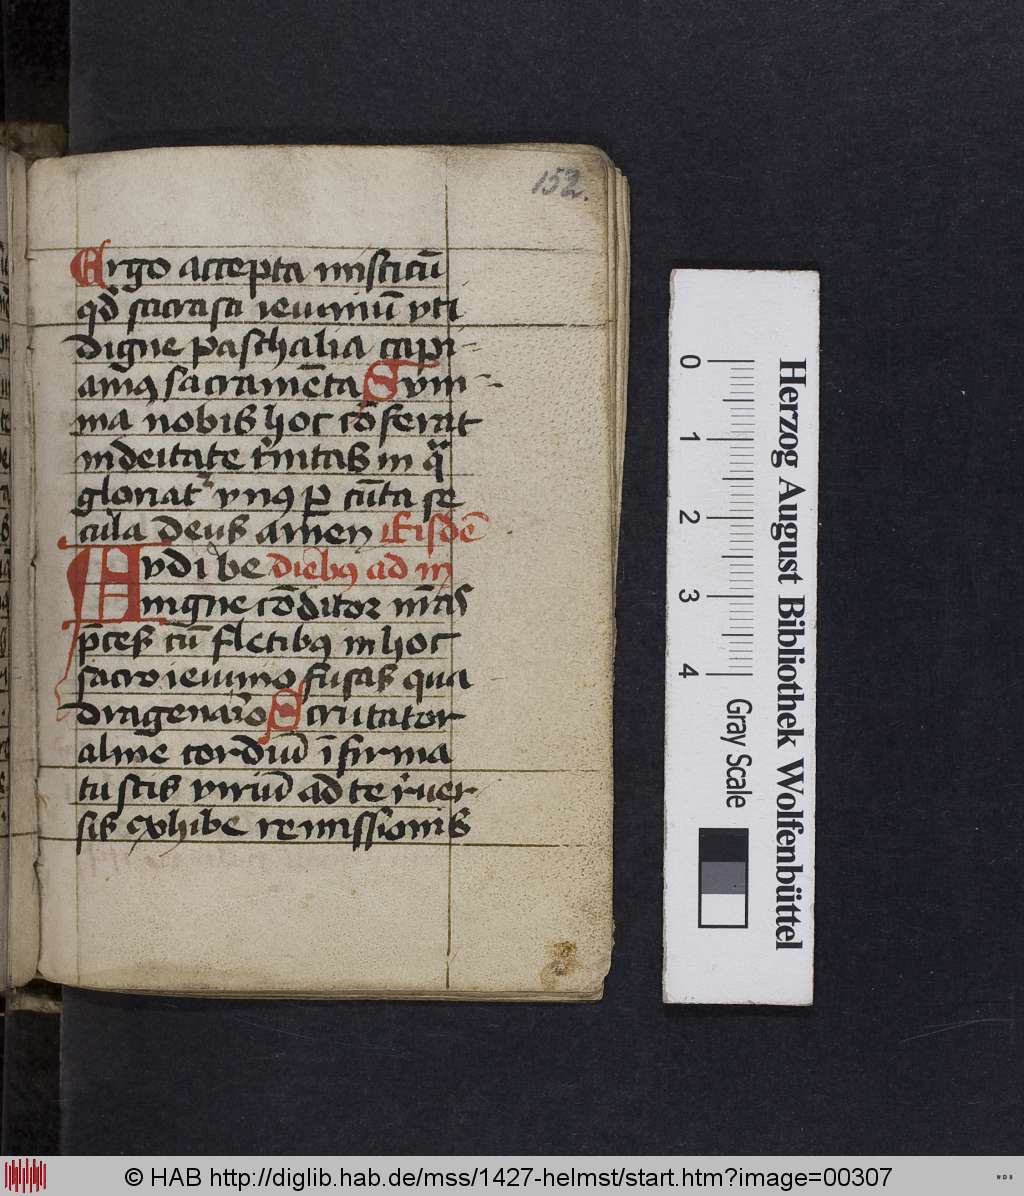 152.
Ergo accepta misticū
qd̄ sacrasti ieiuniū vti
digne paschalia capi-
amꝰ sacramēta Sūm-
ma nobis hoc cōferat
in deitate trinitas in qua
gloriatr vnꝰ ꝑ cūcta se
cula deus amen Eisdē
Avdi be diebꝰ ad m
nigne cōditor nr̄as
p̄ces cū fletibꝰ in hoc
sacro ieiunio fusas qua
dragenario Scrutator
alme cordiū īfirma
tu scis viriū ad te reuer-
sis exhibe remissionis
0 1 2 3 4
Gray Scale
Herzog August Bibliothek Wolfenbüttel
© HAB http://diglib.hab.de/mss/1427-helmst/start.htm?image=00307